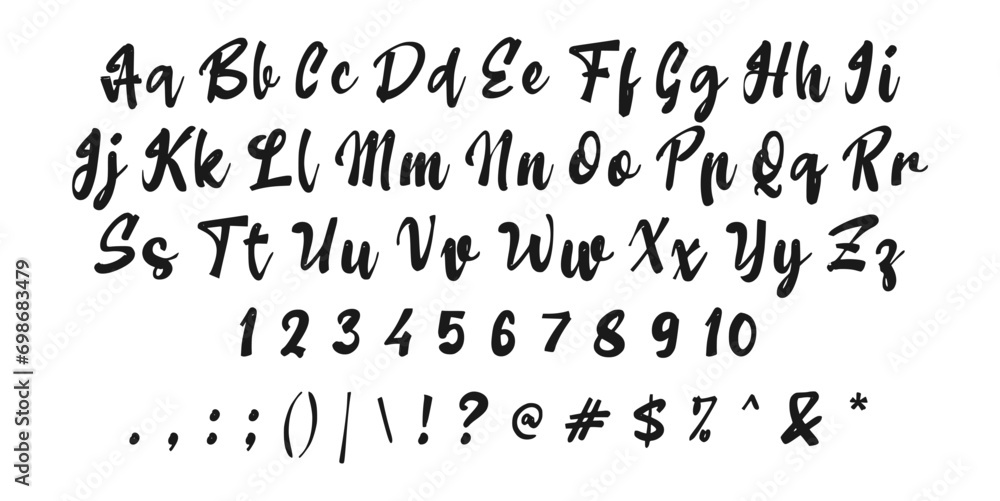 Aa Bb Cc Dd Ee Ff Gg Hh Ii
Jj Kk Ll Mm Nn Oo Pp Qq Rr
Ss Tt Uu Vv Ww Xx Yy Zz
1 2 3 4 5 6 7 8 9 10
. , : ; () | \ ! ? @ # $ % ^ & *
Adobe Stock | #698683479